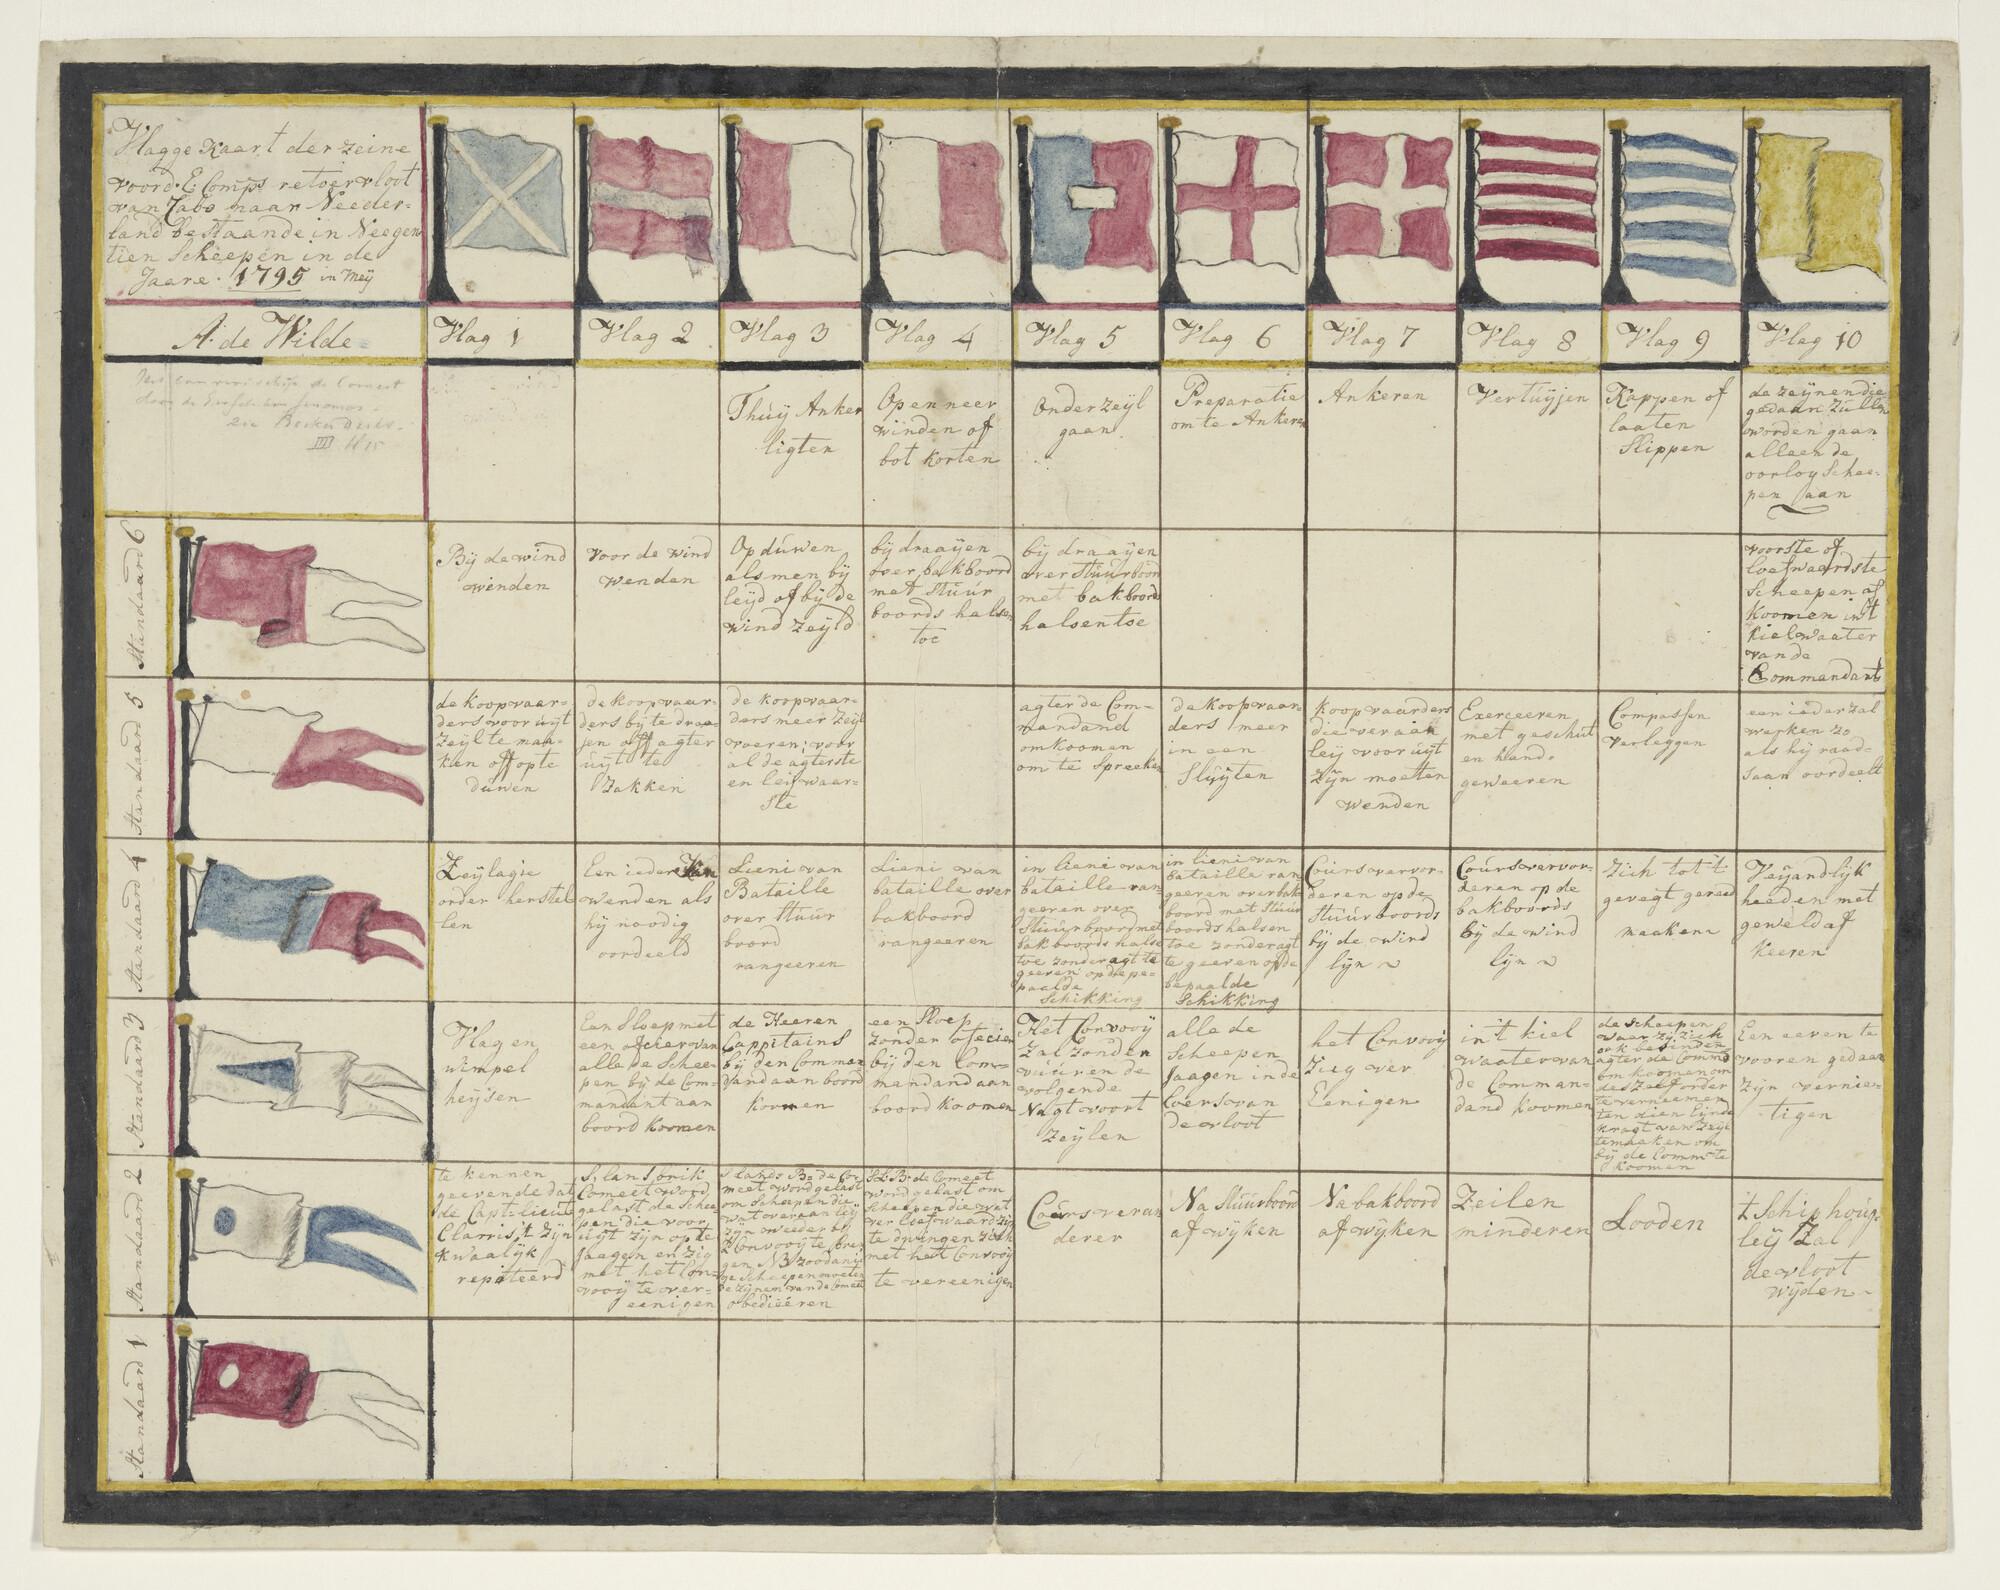 Vlagge Kaart der zeine
voord. E: Comps retoervloot
van Cabo naar Needer-
land bestaande in Neegen
tien Scheepen in de
Jaare. 1795 in Meÿ
A: de Wilde
Vlag 1
Vlag 2
Vlag 3
Vlag 4
Vlag 5
Vlag 6
Vlag 7
Vlag 8
Vlag 9
Vlag 10
Thuÿ Anker
ligten
Op en neer
winden of
bot korten
Onder Zeÿl
gaan
Preparatie
om te Ankeren
Ankeren
Vertuÿjen
Kappen of
laaten
Slippen
de zeÿnen die
gedaan zullen
worden gaan
alleen de
oorlog Schee-
pen aan
Standaard 6
Bÿ de wind
wenden
voor de wind
wenden
Op duwen
als men bÿ
leÿd of bÿ de
wind Zeÿld
bÿ draaÿen
over bakboord
met Stuur
boords halsen
toe
bÿ draaÿen
over Stuurboord
met bakboords
halsen toe
voorste of
loefwaardste
Scheepen af
koomen in't
kielwaater
van de
Commandant
Standaard 5
de koopvaar-
ders voor uÿt
Zeÿl te maa-
ken off op te
duwen
de koopvaar-
ders bÿ te draa-
jen off agter
uÿt te
Zakken
de koopvaar-
ders meer Zeÿl
voeren; voor
al de agterste
en leÿwaar-
ste
agter de Com-
mandand
om koomen
om te Spreeken
de koopvaar-
ders meer
in een
Sluÿten
koopvaarders
die ver aan
leÿ voor uÿt
zÿn moeten
wenden
Exerceeren
met geschut
en hand-
geweeren
Compassen
verleggen
een ieder zal
werken zo
als hÿ raad-
saam oordeelt
Standaard 4
Zeÿlagie
order herstel
len
Een ieder kan
wenden als
hÿ noodig
oordeeld
Lieni van
Bataille
over Stuur
boord
rangeeren
Lieni van
bataille over
bakboord
rangeeren
in lieni van
bataille ran
geeren over
Stuurboord met
bakboords halse
toe zonder agt te
geeren op de be-
paalde
Schikking
in lieni van
bataille ran
geeren over bak
boord met Stuur
boords halsen
toe zonder agt
te geeren op de
bepaalde
Schikking
Cours vervor-
deren op de
Stuurboords
bÿ de wind
lÿn
Cours vervor-
deren op de
bakboords
bÿ de wind
lÿn
Zich tot't
gevegt gereed
maaken
Veÿandlÿk
heeden met
geweld af
keeren
Standaard 3
Vlag en
wimpel
heÿsen
Een Sloep met
een oficier van
alle de Schee-
pen bÿ de Com-
mandant aan
boord koomen
de Heeren
Cappitains
bÿ den Comman
dand aan boord
koomen
een Sloep
zonder oficier
bÿ den Com-
mandand aan
boord koomen
Het Convooÿ
Zal Zonder
vuuren de
volgende
Nagt voort
Zeÿlen
alle de
Scheepen
Jaagen in de
Coers van
de vloot
het Convooÿ
Zieg ver
Eenigen
in't kiel
waater van
de Comman-
dand koomen
de Scheepen
waar zÿ zich
ook bevinden
agter de Commd
om koomen om
des zelf order
te verneemen
ten dien Eijnde
kragt van Zeÿl
te maaken om
bÿ de Commte
koomen
Een eeven te
vooren gedaan
Zÿn vernie-
tigen
Standaard 2
te kennen
geevende dat
de Capt: lieut
Clarris't Zÿn
kwaalÿk
repiteerd
S, lands brik
Comeet word
gelast de Schee-
pen die voor
uÿt zÿn op te
Jaagen en Zig
met het Con-
vooÿ te ver-
eenigen
S lands B: de Co
meet word gelast
om Scheepen die
wat ver aan leÿ
zÿn weeder bÿ
't Convooÿ te bren
gen NB zoodanig
ge Scheepen moeten
de zÿnen van de Comeet
obedieeren
SLB: de Comeet
word gelast om
Scheepen die wat
ver loefwaard zÿn
te dwingen Zich
met het Convooÿ
te vereenigen
Cours veran
deren
Na Stuurboord
afwÿken
Na bakboord
afwÿken
Zeilen
minderen
Looden
't Schip houp
leÿ Zal
de vloot
wÿden
Standaard 1